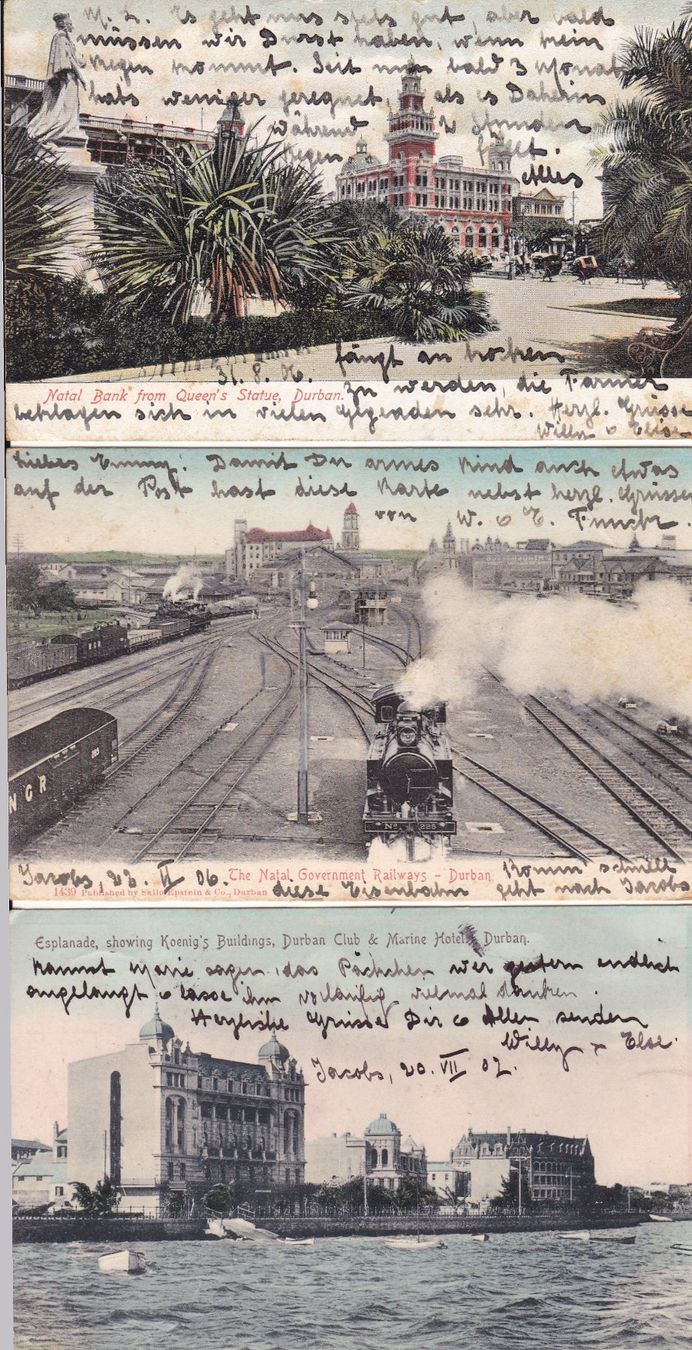 M. L. Es geht uns stets gut, aber bald
müssen wir Durst haben, wenn kein
Regen kommt. Seit nun bald 3 Monat
habs weniger geregnet, als es Daheim
während 2 Stunden
Regen fällt.
Alles
fängt an trocken
31. 8. 06. zu werden, die Farmer
Natal Bank from Queen's Statue, Durban.
beklagen sich in vielen gegenden sehr. Herzl. Grüsse
Willy & Else
Liebes Emmy! Damit Du armes Kind auch etwas
auf der Post hast diese Karte nebst herzl. Grüssen
von W. & E.
NGR
No 225
Jacobs, 22. II 06. The Natal Government Railways - Durban Komm schnell
1439 Published by Sallo Epstein & Co., Durban diese Eisenbahn geht nach Jacobs
Esplanade, showing Koenig's Buildings, Durban Club & Marine Hotel, Durban.
kannst Marie sagen, das Päckchen wär gestern endlich
angelangt & lasse ihm vorläufig vielmal danken.
Herzliche Grüsse Dir & Allen senden
Willy & Else.
Jacobs, 20. VII 07.